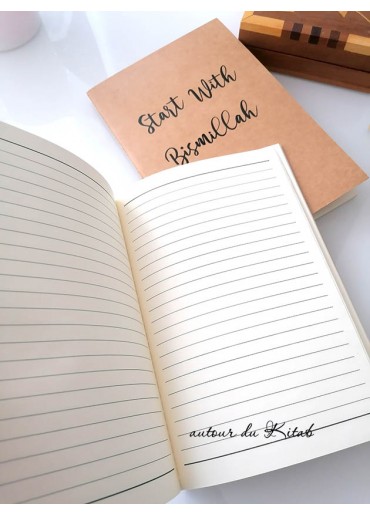 Start With
Bismillah
autour du Kitab